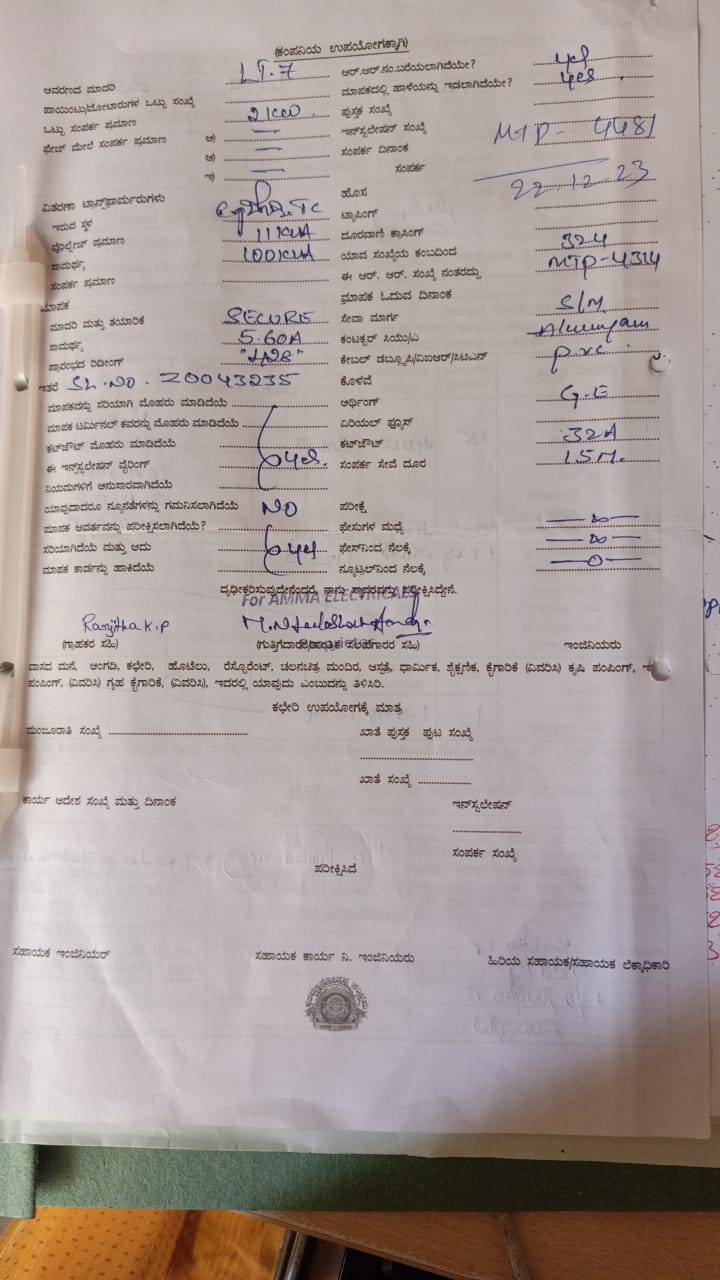 (ಕಂಪನಿಯ ಉಪಯೋಗಕ್ಕಾಗಿ)
ಆವರಣದ ಮಾದರಿ LT-7 ಆರ್.ಆರ್.ನಂ.ಬರೆಯಲಾಗಿದೆಯೇ? yes
ಪಾಯಿಂಟು/ಮೋಟಾರುಗಳ ಒಟ್ಟು ಸಂಖ್ಯೆ ಮಾಪಕದಲ್ಲಿ ಹಾಳೆಯನ್ನು ಇಡಲಾಗಿದೆಯೇ? yes
ಒಟ್ಟು ಸಂಪರ್ಕ ಪ್ರಮಾಣ 2KW ಪುಸ್ತಕ ಸಂಖ್ಯೆ
ಫೇಜ್ ಮೇಲೆ ಸಂಪರ್ಕ ಪ್ರಮಾಣ ಇನ್‌ಸ್ಟಲೇಷನ್ ಸಂಖ್ಯೆ MTP-4481
ಸಂಪರ್ಕ ದಿನಾಂಕ
ಇ) ಸಂಪರ್ಕ 22.12.23
ವಿತರಣಾ ಟ್ರಾನ್ಸ್‌ಫಾರ್ಮರುಗಳು ಹೊಸ
ಇರುವ ಸ್ಥಳ ಟ್ಯಾಪಿಂಗ್
ವೊಲ್ಟೇಜ್ ಪ್ರಮಾಣ 11KVA ದೂರವಾಣಿ ಕ್ರಾಸಿಂಗ್
ಸಾಮರ್ಥ್ಯ 100KVA ಯಾವ ಸಂಖ್ಯೆಯ ಕಂಬದಿಂದ 324
ಸಂಪರ್ಕ ಪ್ರಮಾಣ ಈ ಆರ್. ಆರ್. ಸಂಖ್ಯೆ ನಂತರದ್ದು MTP-4314
ಮಾಪಕ ಮಾಪಕ ಓದುವ ದಿನಾಂಕ
ಮಾದರಿ ಮತ್ತು ತಯಾರಿಕೆ SECURE ಸೇವಾ ಮಾರ್ಗ S/M.
ಸಾಮರ್ಥ್ಯ 5.60A ಕಂಟಕ್ಟರ್ ಸಿಯು/ಎ
ಪ್ರಾರಂಭದ ರಿಡೀಂಗ್ ಕೇಬಲ್ ಡಬ್ಲ್ಯೂಪಿ/ವಿಐಆರ್/ಸಿಟಿಎಸ್ P.V.C
ಇತರೆ SL.NO - Z0043235 ಕೊಳವೆ
ಮಾಪಕವನ್ನು ಸರಿಯಾಗಿ ಮೊಹರು ಮಾಡಿದೆಯೆ ಅರ್ಥಿಂಗ್ G.E
ಮಾಪಕ ಟರ್ಮಿನಲ್ ಕವರನ್ನು ಮೊಹರು ಮಾಡಿದೆಯೆ ಏರಿಯಲ್ ಫ್ಯೂಸ್
ಕಟ್‌ಔಟ್ ಮೊಹರು ಮಾಡಿದೆಯೆ ಕಟ್‌ಔಟ್ 32A
ಈ ಇನ್‌ಸ್ಟಲೇಷನ್ ವೈರಿಂಗ್ yes. ಸಂಪರ್ಕ ಸೇವೆ ದೂರ 15M.
ನಿಯಮಗಳಿಗೆ ಅನುಸಾರವಾಗಿದೆಯೆ
ಯಾವುದಾದರೂ ನ್ಯೂನತೆಗಳನ್ನು ಗಮನಿಸಲಾಗಿದೆಯೆ NO ಪರೀಕ್ಷೆ
ಮಾಪಕ ಆವರ್ತವನ್ನು ಪರೀಕ್ಷಿಸಲಾಗಿದೆಯೆ? ಫೇಸುಗಳ ಮಧ್ಯೆ
ಸರಿಯಾಗಿದೆಯೆ ಮತ್ತು ಅದು yes ಫೇಸ್‌ನಿಂದ ನೆಲಕ್ಕೆ
ಮಾಪಕ ಕಾರ್ಡನ್ನು ಹಾಕಿದೆಯೆ ನ್ಯೂಟ್ರಲ್‌ನಿಂದ ನೆಲಕ್ಕೆ
ದೃಢೀಕರಿಸುವುದೇನೆಂದರೆ, ನಾನು ಸ್ಥಾವರವನ್ನು ಪರೀಕ್ಷಿಸಿದ್ದೇನೆ.
For AMMA ELECTRICALS
Ranjitha K.P
(ಗ್ರಾಹಕರ ಸಹಿ) ಇಂಜಿನಿಯರು
ವಾಸದ ಮನೆ, ಅಂಗಡಿ, ಕಛೇರಿ, ಹೊಟೆಲು, ರೆಸ್ಟೊರೆಂಟ್, ಚಲನಚಿತ್ರ ಮಂದಿರ, ಆಸ್ಪತ್ರೆ, ಧಾರ್ಮಿಕ, ಶೈಕ್ಷಣಿಕ, ಕೈಗಾರಿಕೆ (ವಿವರಿಸಿ) ಕೃಷಿ ಪಂಪಿಂಗ್,
ಪಂಪಿಂಗ್, (ವಿವರಿಸಿ) ಗೃಹ ಕೈಗಾರಿಕೆ, (ವಿವರಿಸಿ), ಇದರಲ್ಲಿ ಯಾವುದು ಎಂಬುದನ್ನು ತಿಳಿಸಿರಿ.
ಕಛೇರಿ ಉಪಯೋಗಕ್ಕೆ ಮಾತ್ರ
ಮಂಜೂರಾತಿ ಸಂಖ್ಯೆ ಖಾತೆ ಪುಸ್ತಕ ಪುಟ ಸಂಖ್ಯೆ
ಖಾತೆ ಸಂಖ್ಯೆ
ಕಾರ್ಯ ಆದೇಶ ಸಂಖ್ಯೆ ಮತ್ತು ದಿನಾಂಕ ಇನ್‌ಸ್ಟಲೇಷನ್
ಸಂಪರ್ಕ ಸಂಖ್ಯೆ
ಪರೀಕ್ಷಿಸಿದೆ
ಸಹಾಯಕ ಇಂಜಿನಿಯರ್ ಸಹಾಯಕ ಕಾರ್ಯ ನಿ. ಇಂಜಿನಿಯರು ಹಿರಿಯ ಸಹಾಯಕ/ಸಹಾಯಕ ಲೆಕ್ಕಾಧಿಕಾರಿ